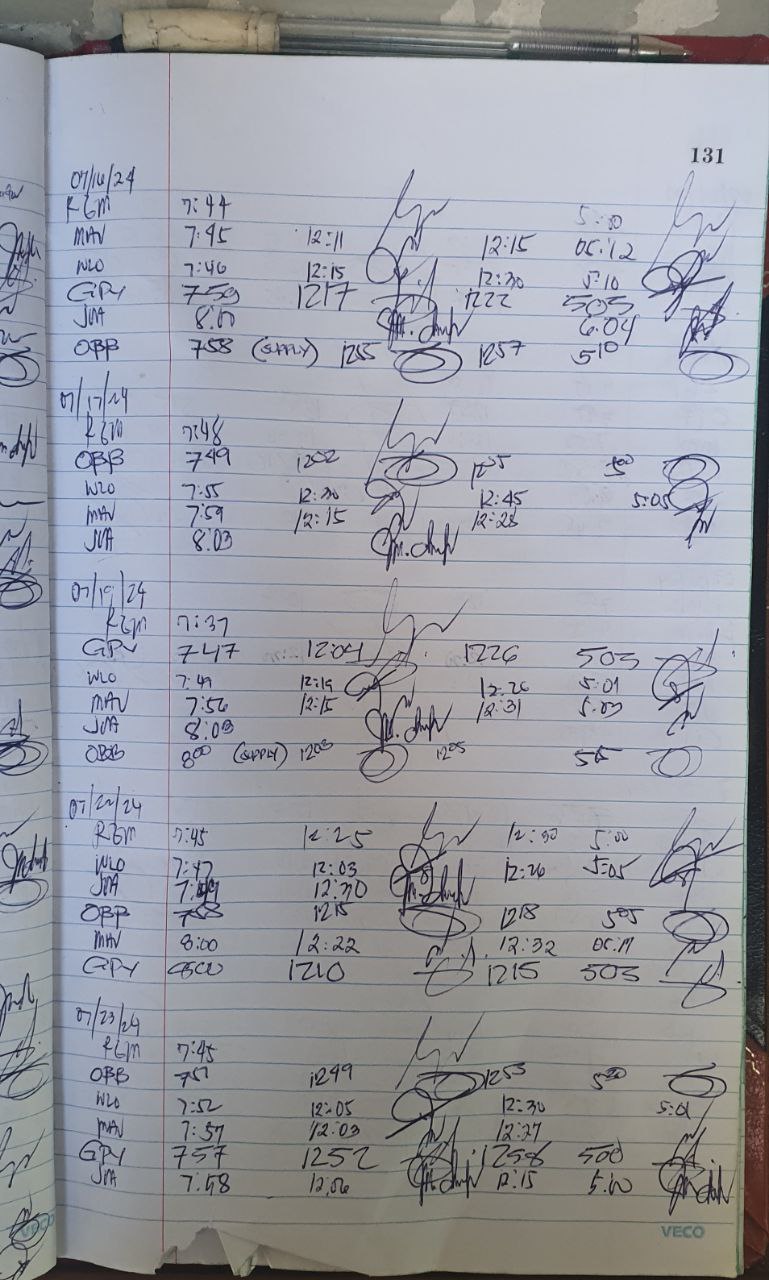 131
07/16/24
RGM 7:44 5:00
MAV 7:45 12:11 12:15 05:12
WLO 7:46 12:15 12:30 5:10
GPY 759 1217 1222 503
JVA 8:00 6:04
OBB 758 (SUPPLY) 1255 1257 510
07/17/24
RGM 7:48
OBB 749 1202 1205 500
WLO 7:55 12:30 12:45 5:05
MAV 7:59 12:15 12:28
JVA 8:03
07/19/24
RGM 7:37
GPY 747 1204 1226 503
WLO 7:49 12:19 12:26 5:01
MAV 7:56 12:15 12:31 5:03
JVA 8:03
OBB 800 (SUPPLY) 1203 1205 505
07/22/24
RGM 7:45 12:25 12:30 5:00
WLO 7:47 12:03 12:26 5:05
JVA 12:30
OBB 758 1215 1218 505
MAV 8:00 12:22 12:32 05:11
GPY 800 1210 1215 503
07/23/24
RGM 7:45
OBB 751 1249 1253 500
WLO 7:52 12:05 12:30 5:01
MAV 7:57 12:03 12:27
GPY 757 1252 1258 500
JVA 7:58 12:06 12:15 5:00
VECO
VECO